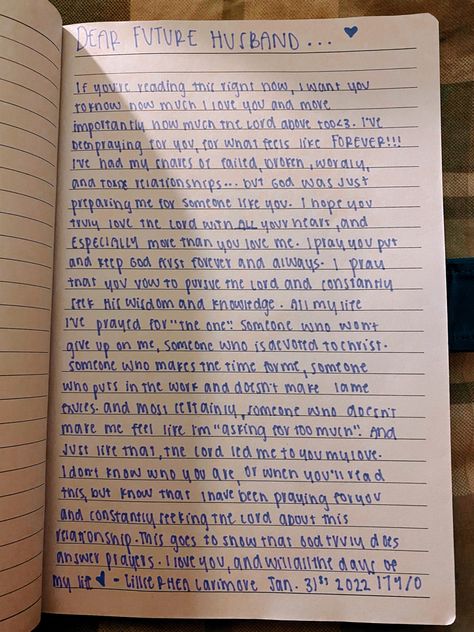 DEAR FUTURE HUSBAND... ♥
If you're reading this right now, I want you
to know how much I love you and more
importantly how much the Lord above too<3. I've
been praying for you, for what feels like FOREVER!!!
I've had my shares of failed, broken, wordly,
and toxic relationships... but God was just
preparing me for someone like you. I hope you
truly love the Lord with ALL your heart, and
ESPECIALLY more than you love me. I pray you put
and keep God first forever and always. I pray
that you vow to pursue the Lord and constantly
seek His wisdom and knowledge. All my life
I've prayed for "the one". Someone who won't
give up on me, someone who is devoted to Christ.
someone who makes the time for me, someone
who puts in the work and doesn't make lame
exuces. and most certainly, someone who doesn't
make me feel like I'm "asking for too much". And
just like that, the Lord led me to you my love.
I don't know who you are, or when you'll read
this, but know that I have been praying for you
and constantly seeking the Lord about this
relationship. This goes to show that God truly does
answer prayers. I love you, and will all the days of
my life ♥ - Larimore Jan. 31st 2022